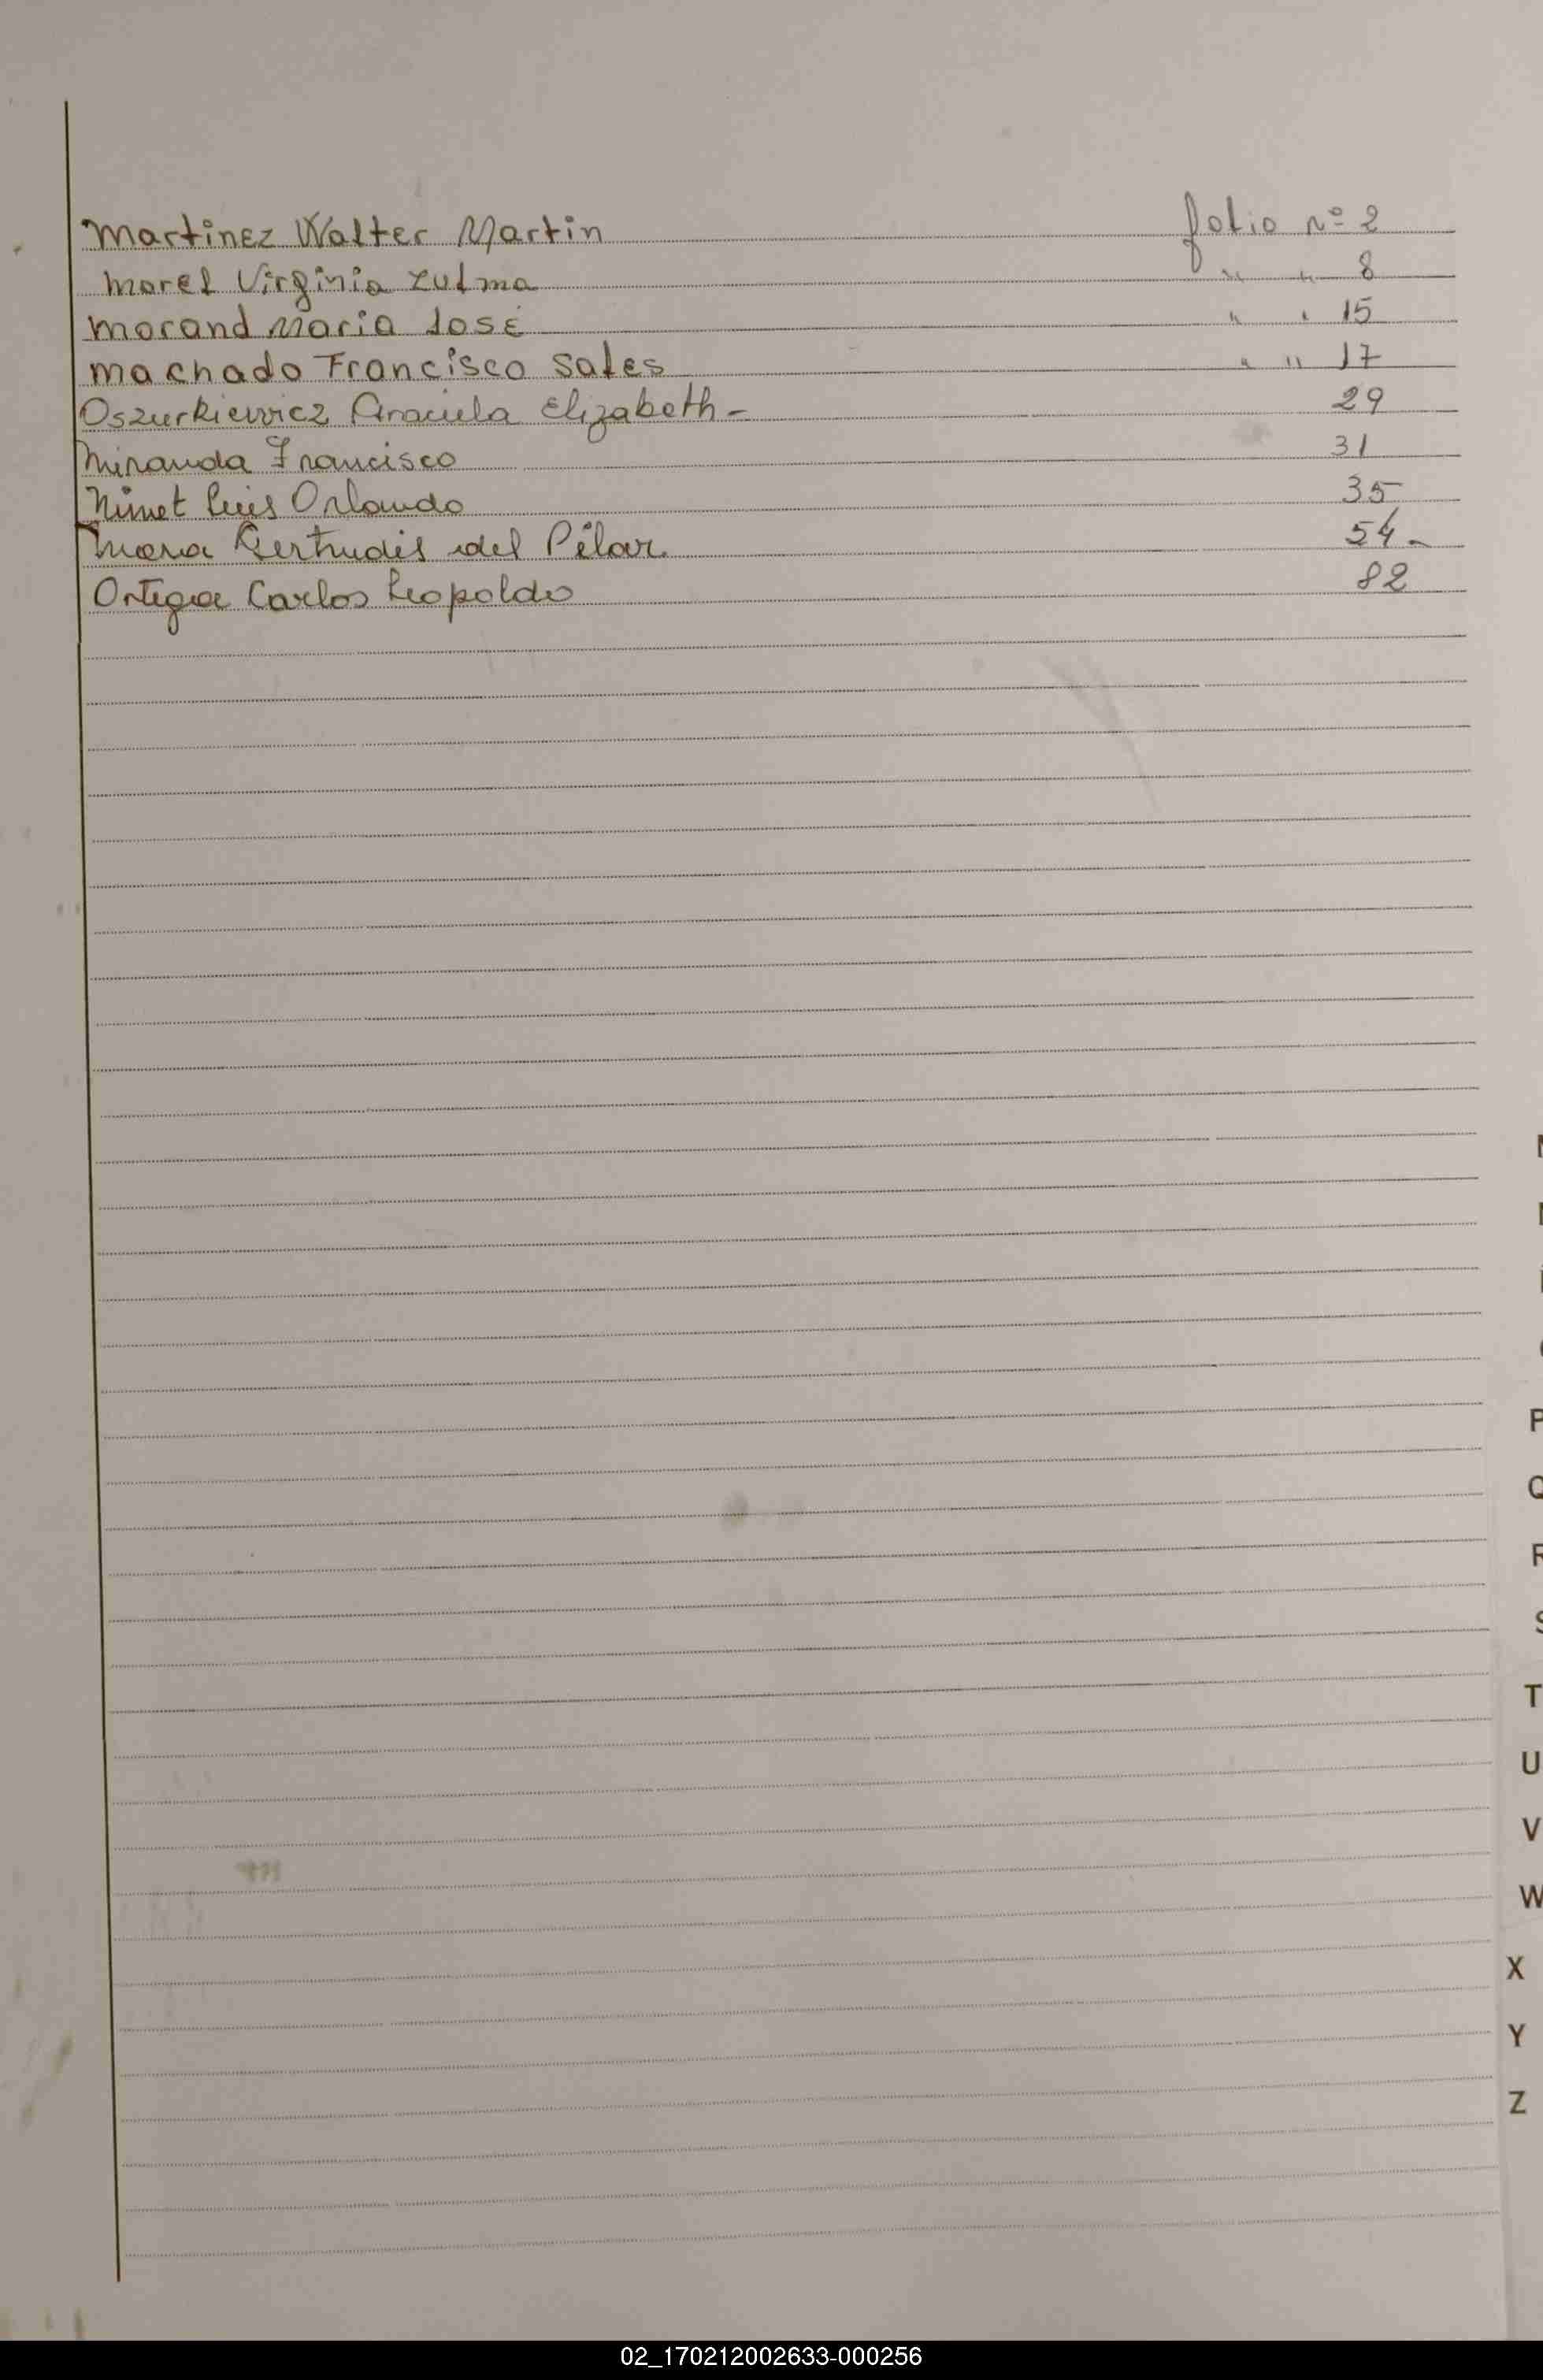 Martinez Walter Martin folio Nº 2
Morel Virginia Zulma " " 8
Morand Maria José " " 15
Machado Francisco Sales " " 17
Oszurkiewicz Graciela Elizabeth - 29
Miranda Francisco 31
Nimet Luis Orlando 35
Gertrudis del Pilar 54-
Ortega Carlos Leopoldo 82
P
Q
R
S
T
U
V
W
X
Y
Z
02_170212002633-000256